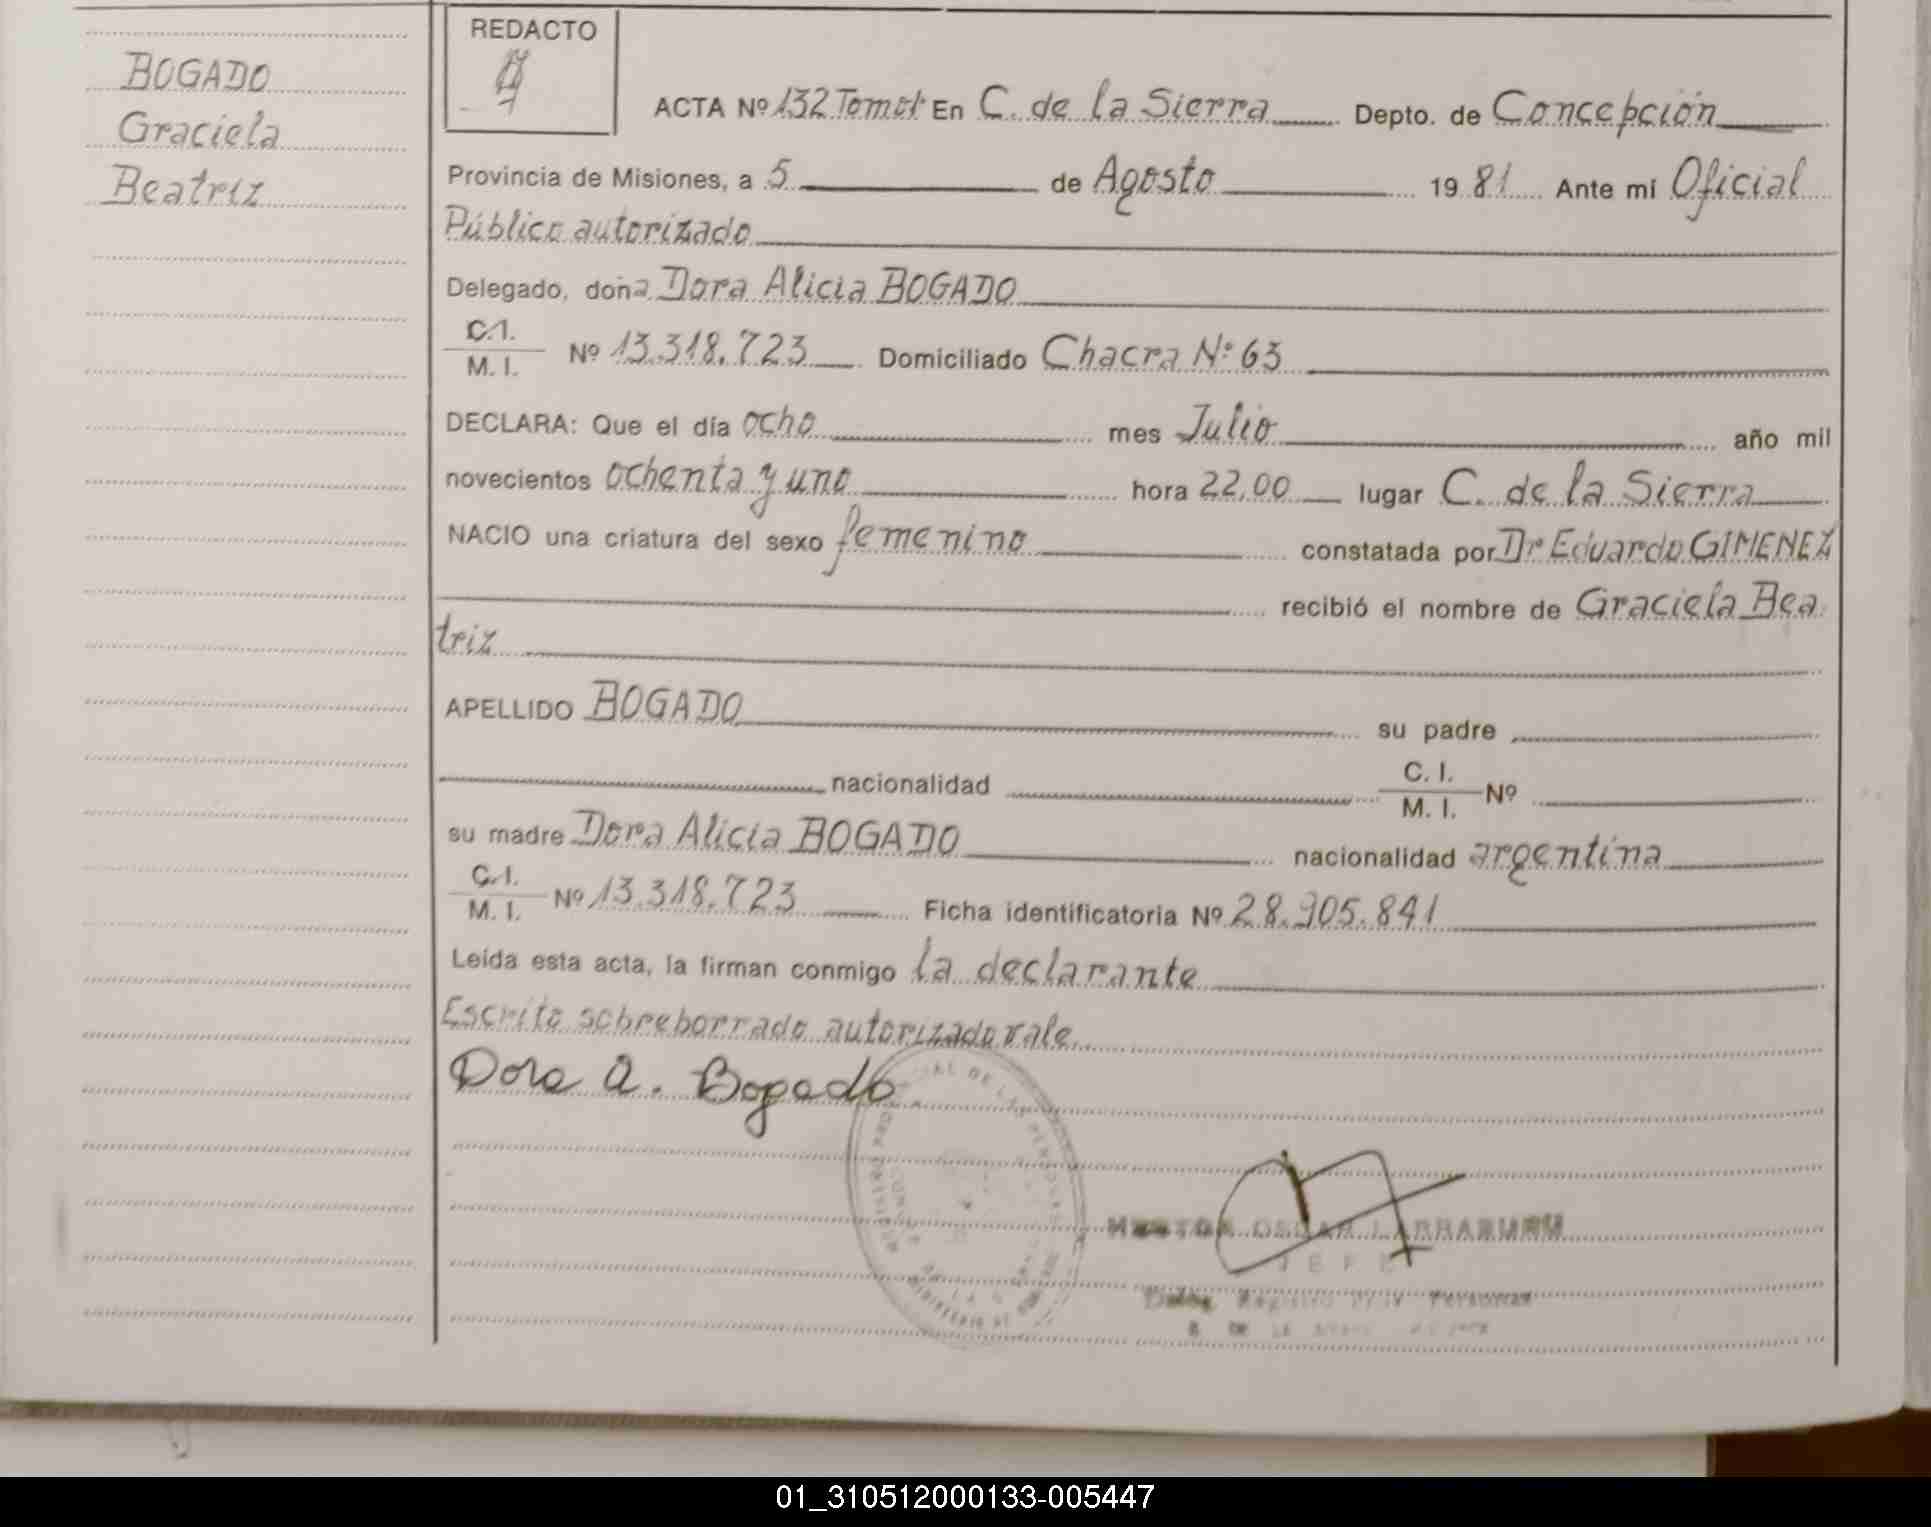 BOGADO
Graciela
Beatriz
REDACTO
ACTA Nº 132 Tomo I En C. de la Sierra Depto. de Concepción
Provincia de Misiones, a 5 de Agosto 1981 Ante mí Oficial
Público autorizado
Delegado, doña Dora Alicia BOGADO
C.I.
M. I. Nº 13.318.723 Domiciliado Chacra Nº 63
DECLARA: Que el día ocho mes Julio año mil
novecientos ochenta y uno hora 22,00 lugar C. de la Sierra
NACIO una criatura del sexo femenino constatada por Dr Eduardo GIMENEZ
recibió el nombre de Graciela Bea
triz
APELLIDO BOGADO su padre
nacionalidad C. I.
M. I. Nº
su madre Dora Alicia BOGADO nacionalidad argentina
C.I.
M. I. Nº 13.318.723 Ficha identificatoria Nº 28.905.841
Leída esta acta, la firman conmigo la declarante
Escrito sobreborrado autorizado vale
Dora A. Bogado
OSCAR LARRABURU
JEFE
Registro Personas
01_310512000133-005447